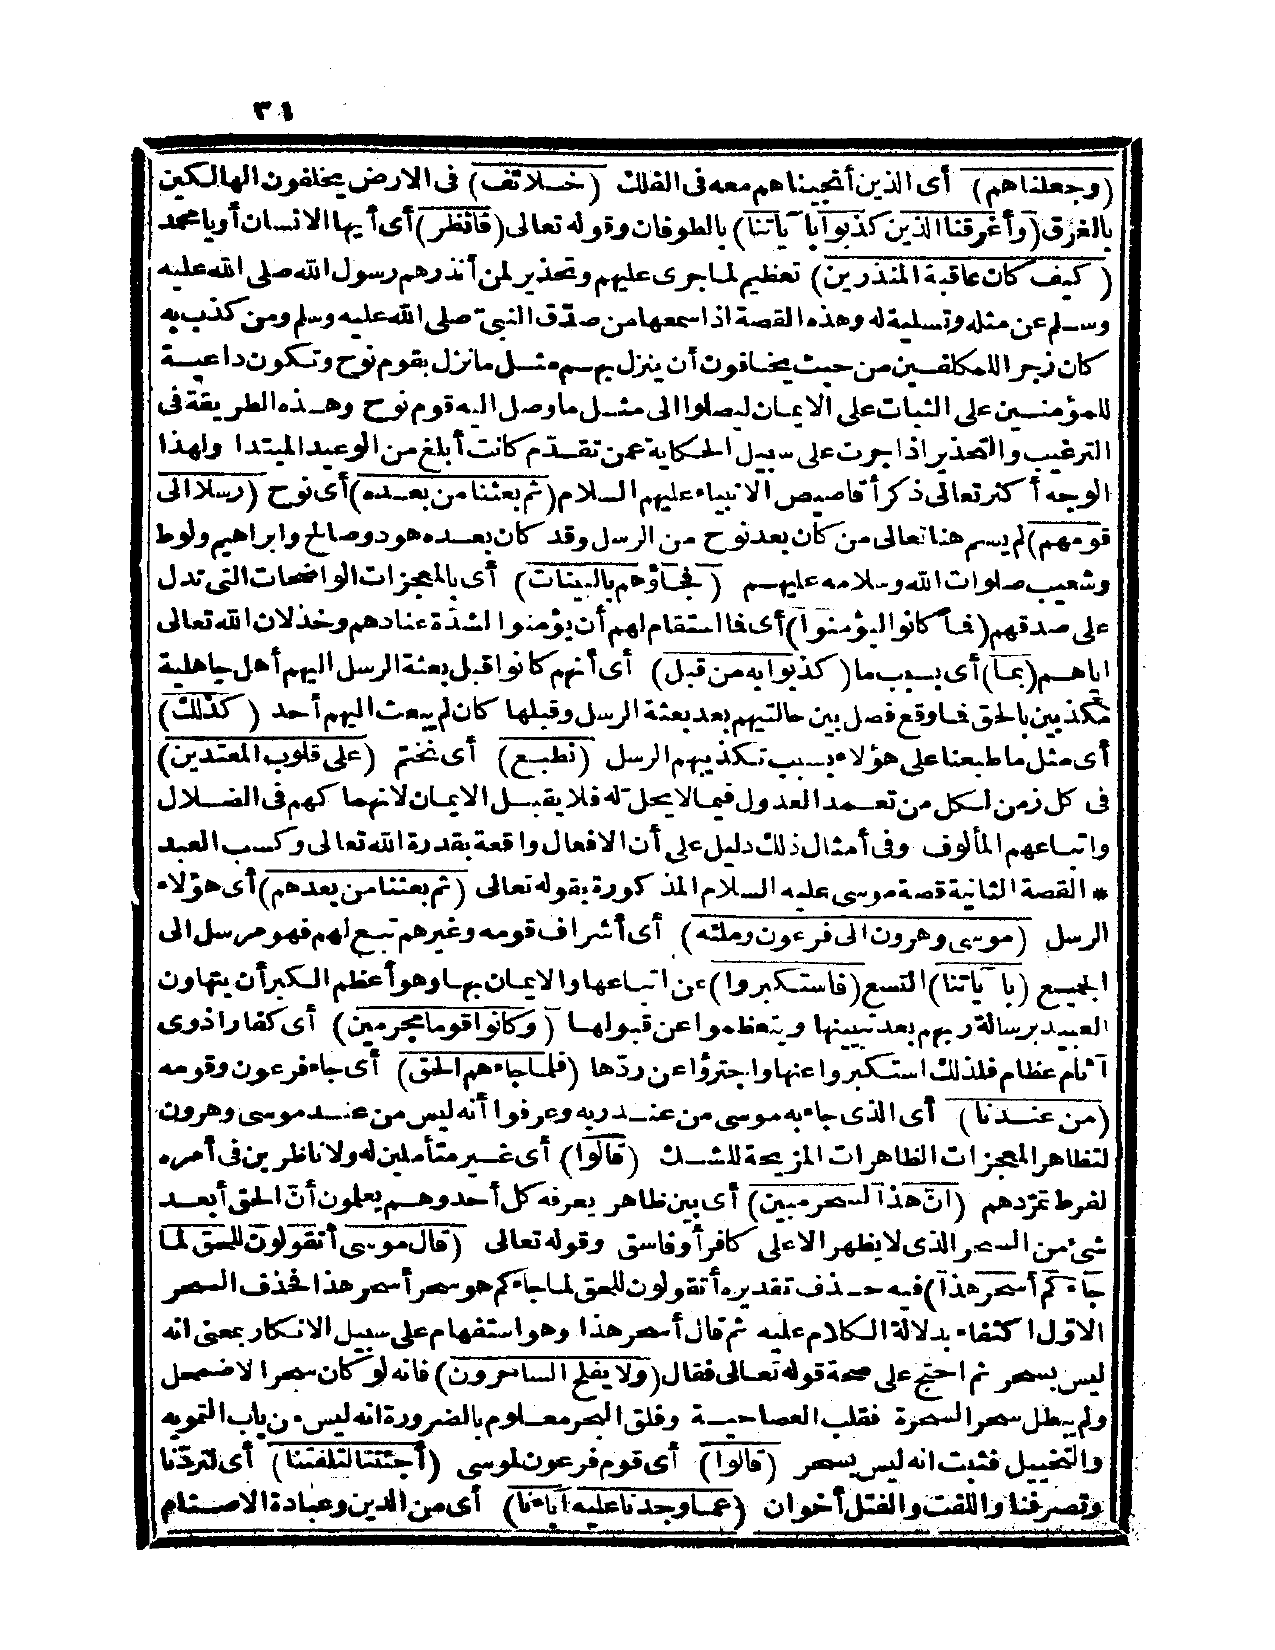 ٣١
(وجعلناهم) أى الذين أنجيناهم معه فى الفلك (خلائف) فى الارض يخلفون الهالكين
بالغرق (وأغرقنا الذين كذبوا بآياتنا) بالطوفان وقوله تعالى (فانظر) أى أيها الانسان أو يا محمد
(كيف كان عاقبة المنذرين) تعظيم لما جرى عليهم وتحذير لمن أنذرهم رسول الله صلى الله عليه
وسلم عن مثله وتسلية له وهذه القصة اذا سمعها من صدّق النبىّ صلى الله عليه وسلم ومن كذب به
كان زجرا للمكلفين من حيث يخافون أن ينزل بهم مثل ما نزل بقوم نوح وتكون داعية
للمؤمنين على الثبات على الايمان ليصلوا الى مثل ما وصل اليه قوم نوح وهذه الطريقة فى
الترغيب والتحذير اذا جرت على سبيل الحكاية عمن تقدّم كانت أبلغ من الوعيد المبتدا ولهذا
الوجه أكثر تعالى ذكر أقاصيص الانبياء عليهم السلام (ثم بعثنا من بعده) أى نوح (رسلا الى
قومهم) لم يسم هنا تعالى من كان بعد نوح من الرسل وقد كان بعده هود وصالح وابراهيم ولوط
وشعيب صلوات الله وسلامه عليهم (فجاؤهم بالبينات) أى بالمعجزات الواضحات التى تدل
على صدقهم (فما كانوا ليؤمنوا) أى فما استقام لهم أن يؤمنوا لشدّة عنادهم وخذلان الله تعالى
اياهم (بما) أى بسبب ما (كذبوا به من قبل) أى أنهم كانوا قبل بعثة الرسل اليهم أهل جاهلية
مكذبين بالحق فما وقع فصل بين حالتيهم بعد بعثة الرسل وقبلها كان لم يبعث اليهم أحد (كذلك)
أى مثل ما طبعنا على هؤلاء بسبب تكذيبهم الرسل (نطبع) أى نختم (على قلوب المعتدين)
فى كل زمن لكل من تعمد العدول فيما لا يحل له فلا يقبل الايمان لانهماكهم فى الضلال
واتباعهم المألوف وفى أمثال ذلك دليل على أن الافعال واقعة بقدرة الله تعالى وكسب العبد
* القصة الثانية قصة موسى عليه السلام المذكورة بقوله تعالى (ثم بعثنا من بعدهم) أى هؤلاء
الرسل (موسى وهرون الى فرعون وملئه) أى أشراف قومه وغيرهم تبع لهم فهو مرسل الى
الجميع (بآياتنا) التسع (فاستكبروا) عن اتباعها والايمان بها وهو أعظم الكبر أن يتهاون
العبيد برسالة ربهم بعد تبيينها ويتعظموا عن قبولها (وكانوا قوما مجرمين) أى كفارا ذوى
آثام عظام فلذلك استكبروا عنها واجترؤا عن ردّها (فلما جاءهم الحق) أى جاء فرعون وقومه
(من عندنا) أى الذى جاء به موسى من عند ربه وعرفوا أنه ليس من عند موسى وهرون
لتظاهر المعجزات الظاهرات المزيحة للشك (قالوا) أى غير متأملين له ولا ناظرين فى أمره
لفرط تمرّدهم (انّ هذا لسحر مبين) أى بين ظاهر يعرفه كل أحد وهم يعلمون أنّ الحق أبعد
شئ من السحر الذى لا يظهر الا على كافر أو فاسق وقوله تعالى (قال موسى أتقولون للحق لما
جاءكم أسحر هذا) فيه حذف تقديره أتقولون للحق لما جاءكم هو سحر أسحر هذا فحذف السحر
الاوّل اكتفاء بدلالة الكلام عليه ثم قال أسحر هذا وهو استفهام على سبيل الانكار بمعنى انه
ليس بسحر ثم احتج على صحة قوله تعالى فقال (ولا يفلح الساحرون) فانه لو كان سحرا لاضمحل
ولم يبطل سحر السحرة فقلب العصا حية وفلق البحر معلوم بالضرورة انه ليس من باب التمويه
والتخييل فثبت انه ليس بسحر (قالوا) أى قوم فرعون لموسى (أجئتنا لتلفتنا) أى لتردّنا
وتصرفنا واللفت والفتل أخوان (عما وجدنا عليه آباءنا) أى من الدين وعبادة الاصنام